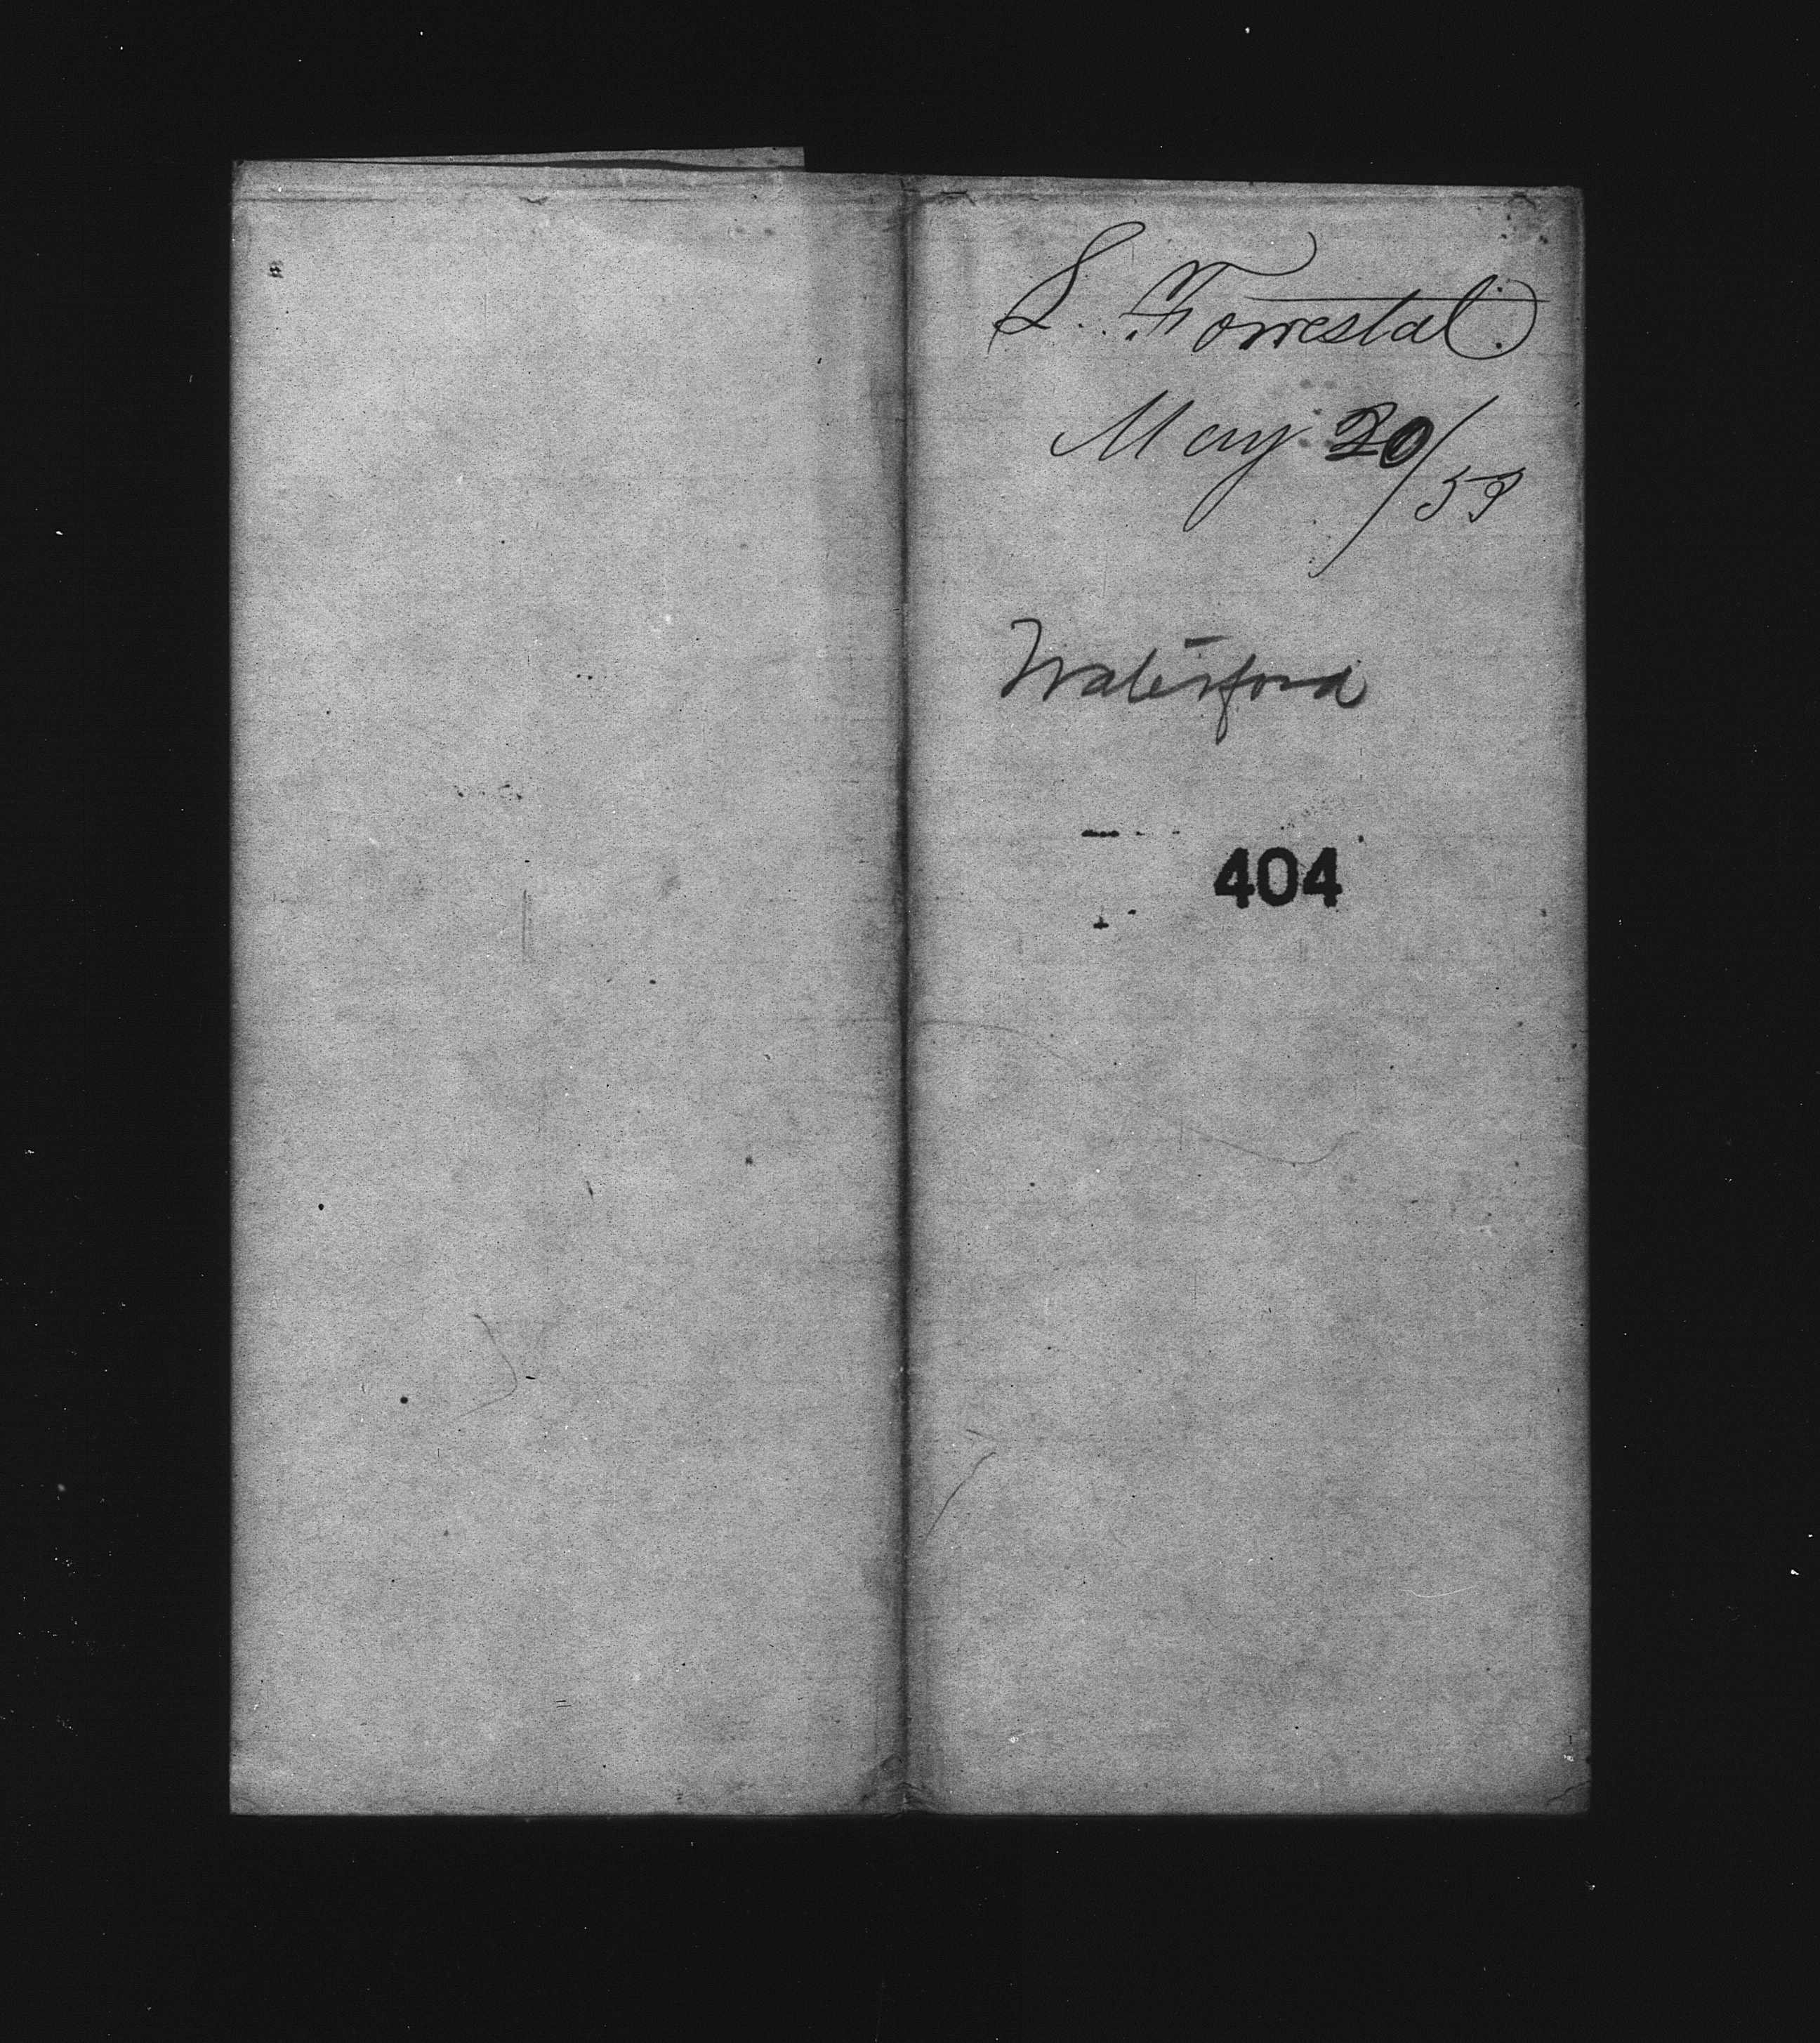 L. Forrestal.
May 20/58
Waterford
404